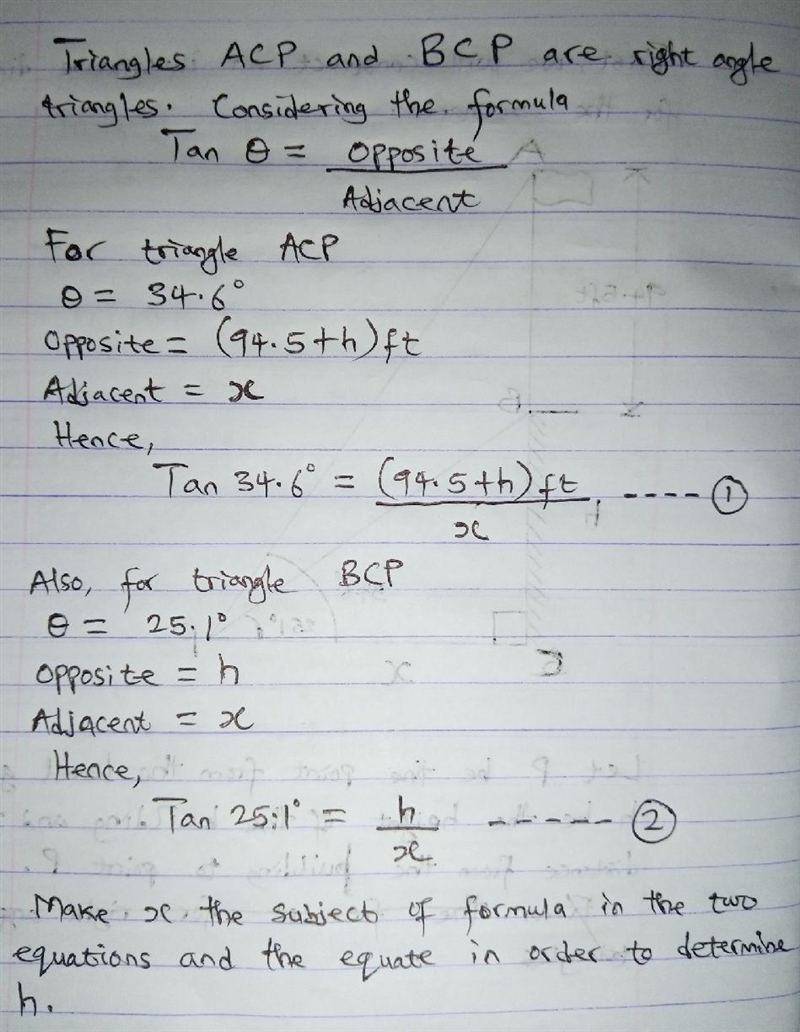 Triangles ACP and BCP are right angle
triangles. Considering the formula
Tan θ = Opposite
Adjacent
For triangle ACP
θ = 34.6°
Opposite = (94.5+h)ft
Adjacent = x
Hence,
Tan 34.6° = (94.5+h)ft ---- ①
x
Also, for triangle BCP
θ = 25.1°
Opposite = h
Adjacent = x
Hence,
Tan 25.1° = h ------ ②
x
Make x the subject of formula in the two
equations and the equate in order to determine
h.